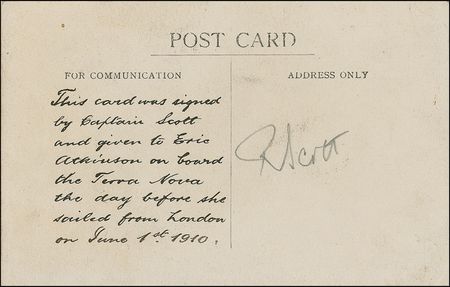 POST CARD
FOR COMMUNICATION
ADDRESS ONLY
This card was signed
by Captain Scott
and given to Eric
Atkinson on board
the Terra Nova
the day before she
sailed from London
on June 1st 1910.
R Scott